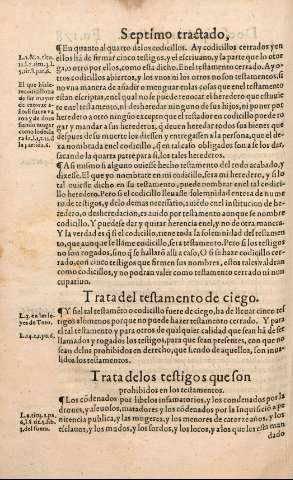 Septimo tractado,
¶En quanto al quarto delos codicillos. Ay codicillos cerrados y en
ellos há de firmar cinco testigos, y el escriuano, y la parte que lo otor
ga, o otro por ellos, como esta dicho. En el testamento cerrado. Ay o-
tros codicillos abiertos, y los vnos ni los otros no son testamentos, si
no vna manera de añadir o menguar
estan escriptas, en el qual no se puede reuocar el heredero que estituie
te en el testamento, ni desheredar ninguno de sus hijos, ni poner por
heredero a otro ninguno excepto que el testador en codicillo puede ro
gar y mandar a sus herederos, que
despues de su muerte los diessen y entregassen a la persona, que el de-
xa nombrada enel codicillo, en tal caso obligados son a lo dar,
sacando la quarta parte para si, los tales herederos.
¶Assi mismo si alguno ouiesse hecho testamento del todo acabado, y
dixesse. El que yo nombrare en mi codicillo, sea mi heredero, y si lo
tal ouiesse dicho en su testamento, puede nombrar enel tal codici-
llo heredero. Pero si el codicillo lleuasse solemnidad entera de nume
ro de testigos, y delo demas necessario, auiédo en el institucion de he-
redero, o desheredacion, es auido por testamento aunque se nombre
codicillo. Y puedese dar y quitar herencia enel, y no de otra manera.
Y la verdad es que si el codicillo, tiene toda la solemnidad del testamen-
to, que aunque le llame codicillo, sera testamento. Pero si los testigos
no son rogados, sino que se hallaró alli a caso, O si se haze codicillo cer-
rado, con cinco testigos que firmen sus nombres, estos tales valdran
como codicillos, y no podran valer como testamento cerrado ni nun
cupatiuo.
Trata del testamento de ciego.
L.3. en las le-
yes de Toro.
¶Y si el tal testaméto o codicillo fuere de ciego, ha de lleuar cinco tes
tigos alomenos porque no puede hazer testamento cerrado. Y para
el tal testamento y para otros de qualquier calidad que sean há de ser
llamados y rogados los testigos, para que sean presentes, con que no
sean delos prohibidos en derecho, que siendo de aquellos, son inua-
lidos los testamentos.
Trata delos testigos que son
prohibidos en los testamentos.
¶Los códenados por libelos infamatorios, y los condenados por la
drones, y aleuosos, matadores y los códenados por la Inquisició a pe
nitencia publica, y las mugeres, y los menores de catorze años, y los
esclauos, y los mudos, y los sordos, y los locos, y a los que les esta man
dado